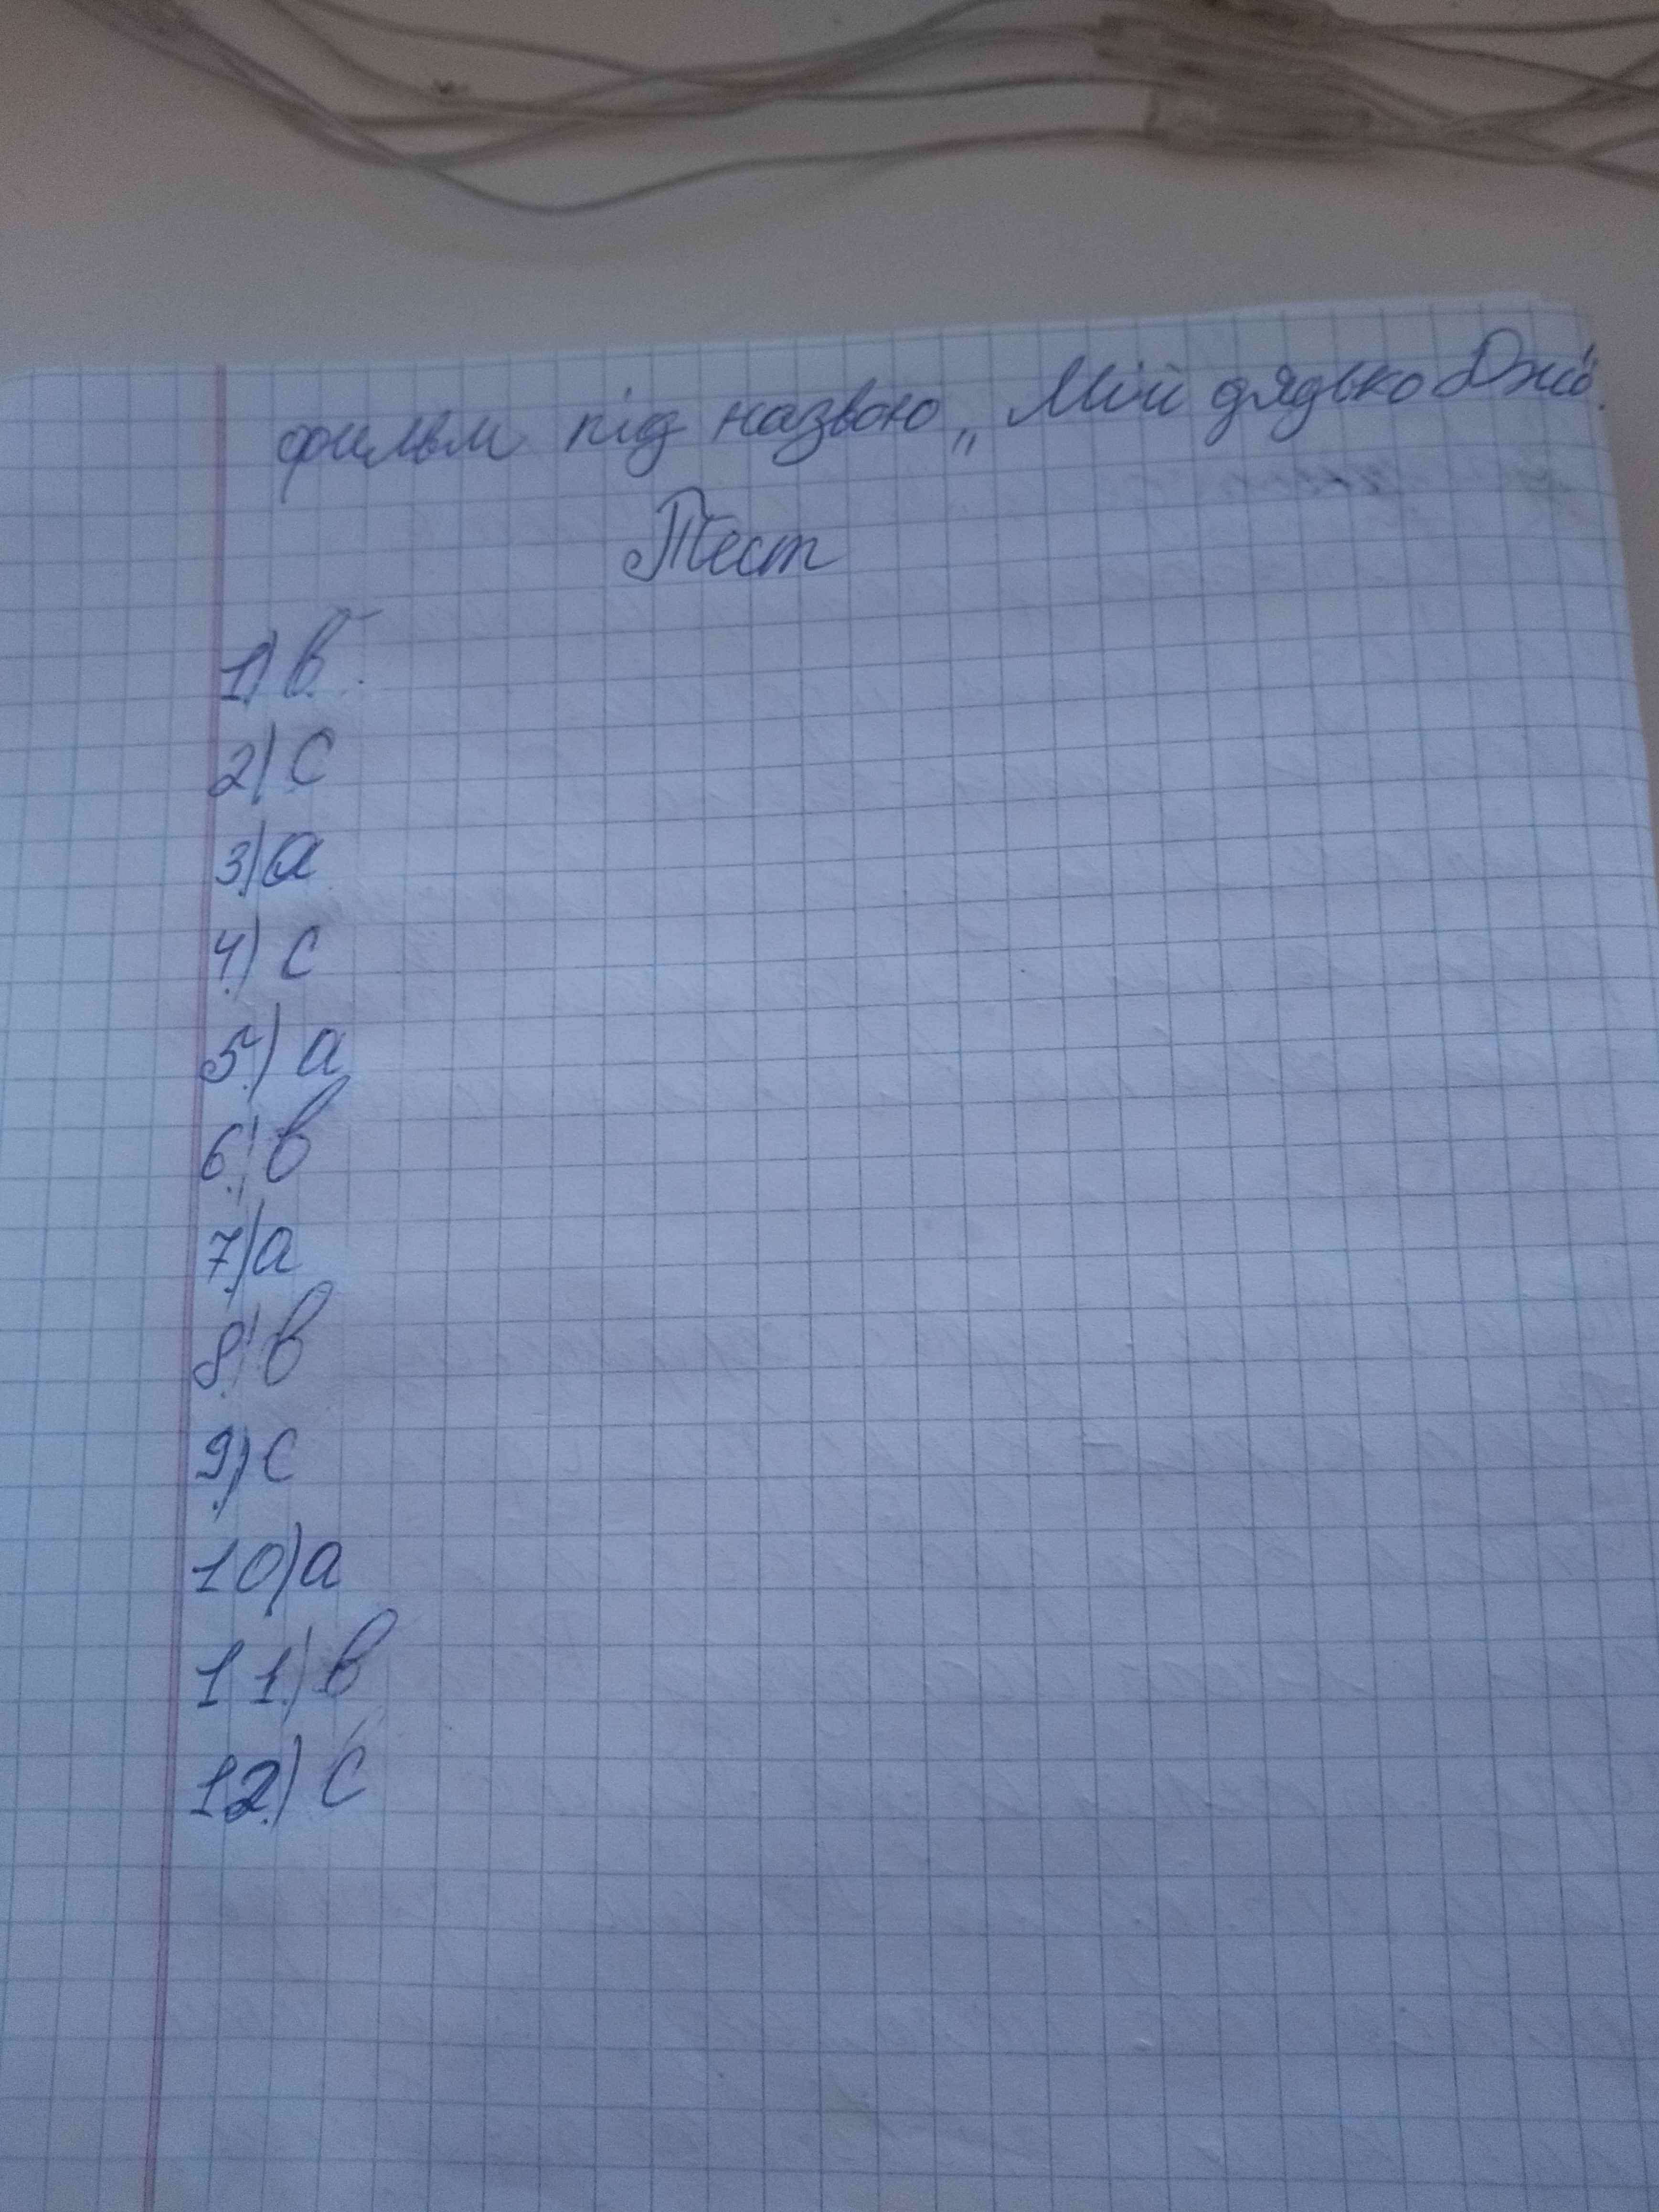 фильм під назвою „Мій дядько Джо".
Тест
1) в.
2) с
3) а
4) с
5) а
6) в
7) а
8) в
9) с
10) а
11) в
12) с